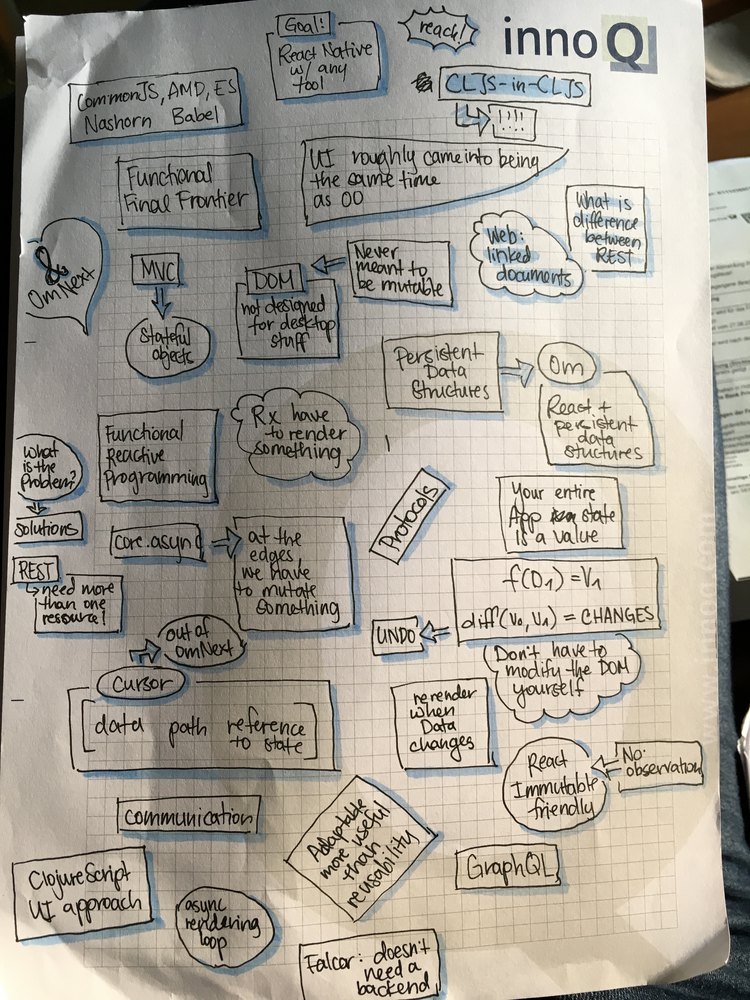 Goal:
React Native
w/ any
tool
react!
innoQ
CommonJS, AMD, ES
Nashorn Babel
CLJS-in-CLJS
!!!!
Functional
Final Frontier
UI roughly came into being
the same time
as OO
What is
difference
between
REST
&
OmNext
MVC
Stateful
objects
DOM
not designed
for desktop
stuff
Never
meant to
be mutable
Web:
linked
documents
Persistent
Data
Structures
Om
React +
persistent
data
stuctures
Functional
Reactive
Programming
Rx have
to render
something
What
is the
Problem?
solutions
REST
need more
than one
resource!
core.async
at the
edges
we have
to mutate
something
Protocols
Your entire
App state
is a value
f(D1) = V1
diff(V0, V1) = CHANGES
UNDO
Don't have to
modify the DOM
yourself
out of
OmNext
Cursor
[data path reference]
to state
rerender
when
Data
changes
React
Immutable
friendly
No
observation
communication
Adaptable
more useful
than
reusability
GraphQL
ClojureScript
UI approach
async
rendering
loop
Falcor: doesn't
need a
backend